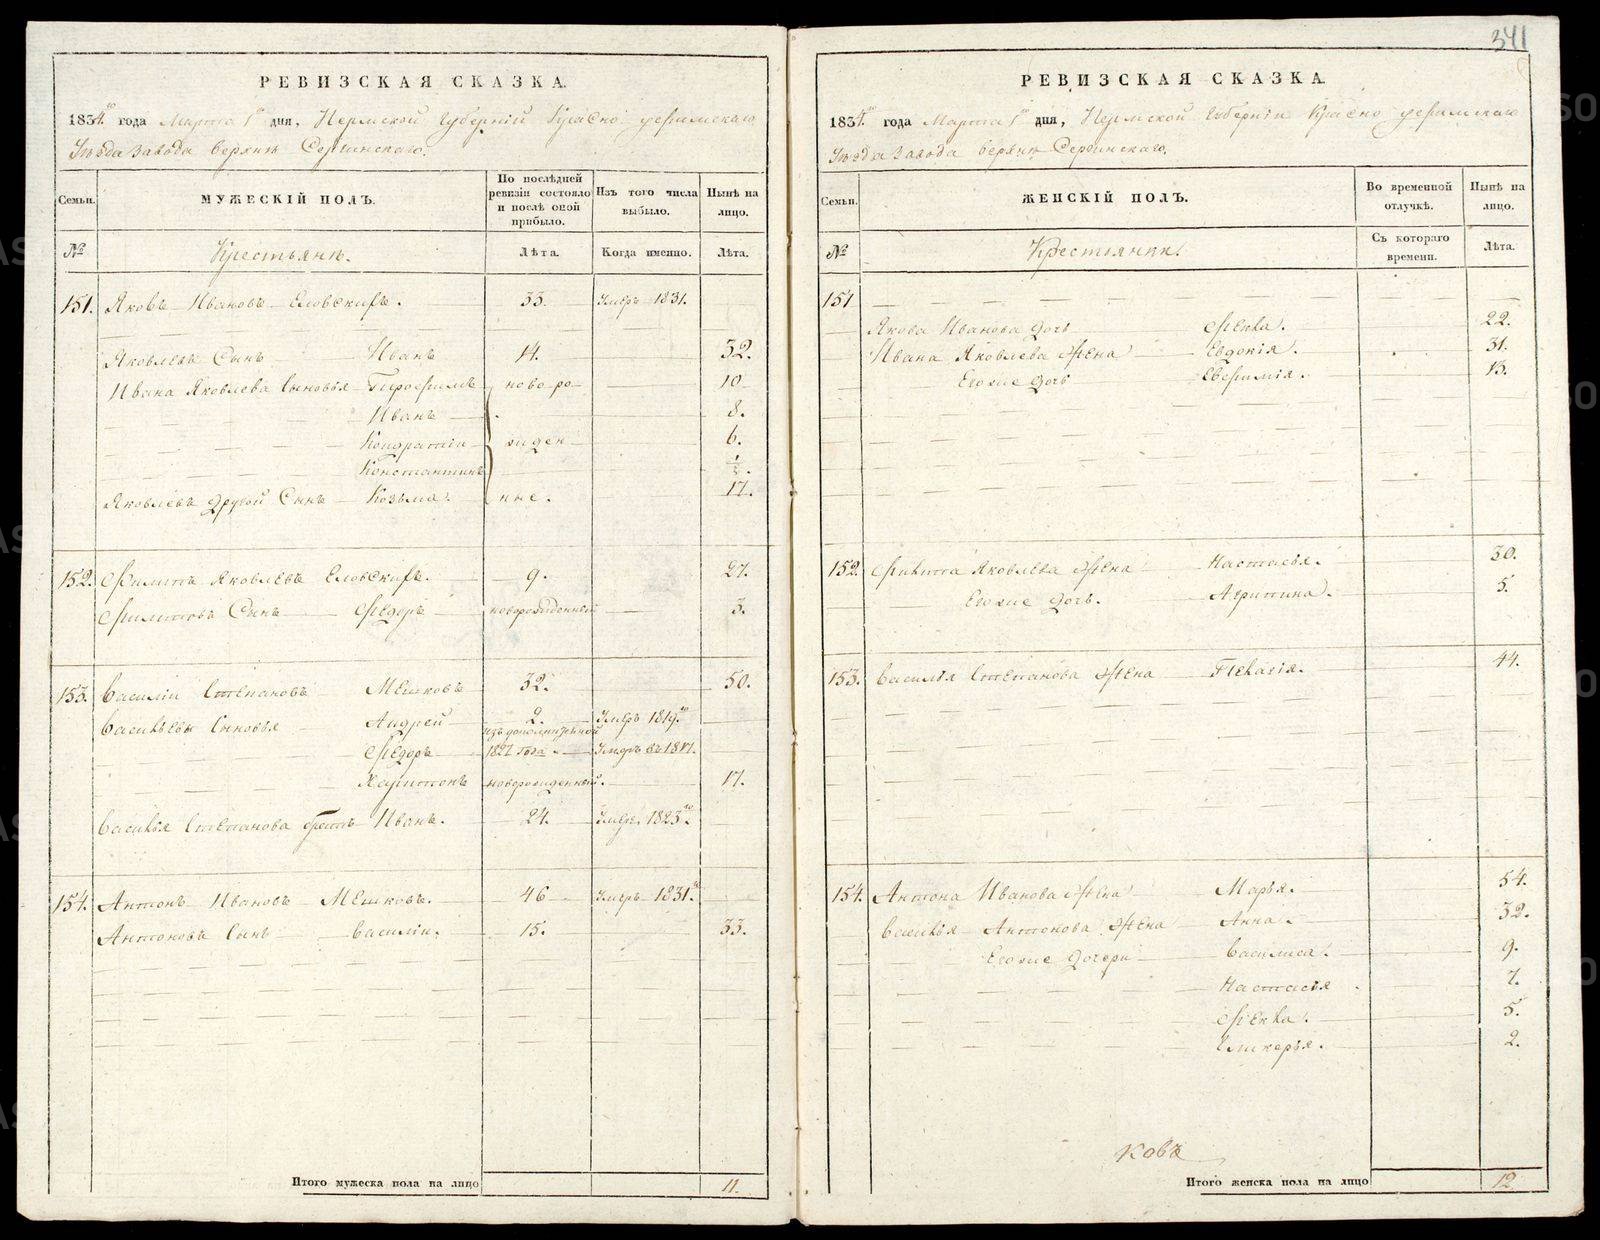 341
РЕВИЗСКАЯ СКАЗКА.
1834 го года Марта 1 го дня, Пермской Губернiи Красно уфимскаго
Уезда Завода верхне Сергинскаго.
Семьи.
МУЖЕСКIЙ ПОЛЪ.
По послѣдней ревизiи состояло и послѣ оной прибыло.
Изъ того числа выбыло.
Нынѣ на лицо.
№
Крестьяне.
Лѣта.
Когда именно.
Лѣта.
151. Яковъ Ивановъ Еловскихъ. 33. Умеръ 1831.
Яковлевъ Сынъ Иванъ 14. 32.
Ивана Яковлева Сыновья ново ро 10
Иванъ 8.
Кондратiи жден 6.
Константинъ
Яковлевъ Другой Сынъ Козьма. ные. 17.
152. Филипъ Яковлевъ Еловскихъ. 9. 27.
Филиповъ Сынъ Федоръ новорожденный 3.
153. Василiи Степановъ Мешковъ 32. 50.
Васильевы Сыновья Андрей 2. Умеръ 1819 го
Федоръ года
Харитонъ новорожденный. 17.
Василья Степанова братъ Иванъ. 24. Умеръ 1823 го
154. Антонъ Ивановъ Мешковъ. 46 Умеръ 1831 го
Антоновъ Сынъ Василiи. 15. 33.
Итого мужеска пола на лицо 11.
РЕВИЗСКАЯ СКАЗКА.
1834 го года Марта 1 го дня, Пермской Губернiи Красно уфимскаго
Уезда Завода верхне Сергинскаго.
Семьи.
ЖЕНСКIЙ ПОЛЪ.
Во временной отлучкѣ.
Нынѣ на лицо.
№
Крестьянки.
Съ котораго времени.
Лѣта.
151
Якова Иванова дочь Фекла. 22.
Ивана Яковлева Жена Евдокiя. 31.
Егоже дочь Евфимiя. 13.
152. Филипа Яковлева Жена Настасья. 30.
Егоже дочь. Агрипина. 5.
153. Василiя Степанова Жена 44.
154. Антона Иванова Жена Марья. 54.
Василья Антонова Жена Анна. 32.
Егоже дочери Василиса. 9.
Настасiя. 7.
Фекла. 5.
Гликерья. 2.
ковъ
Итого женска пола на лицо 12